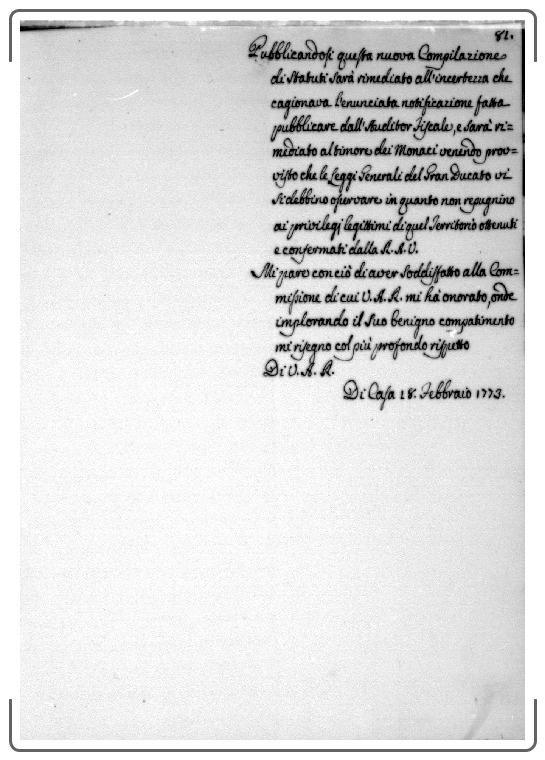 81.
Pubblicandosi questa nuova Compilazione
di Statuti sarà rimediato all'incertezza che
cagionava l'enunciata notificazione fatta
pubblicare dall'Auditor Fiscale, e sarà ri=
mediato al timore dei Monaci venendo prov=
visto che le Leggi Generali del Gran Ducato vi
si debbino osservare in quanto non repugnino
ai privilegj legittimi di quel Territorio ottenuti
e confermati dalla R. A. V.
Mi pare con ciò di aver soddisfatto alla Com=
missione di cui V. A. R. mi hà onorato, onde
implorando il suo benigno compatimento
mi risegno col più profondo rispetto
Di V. A. R.
Di Casa 18. Febbraio 1773.